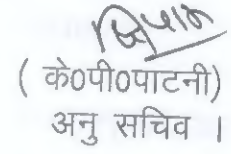 ( के०पी०पाटनी)
अनु सचिव ।